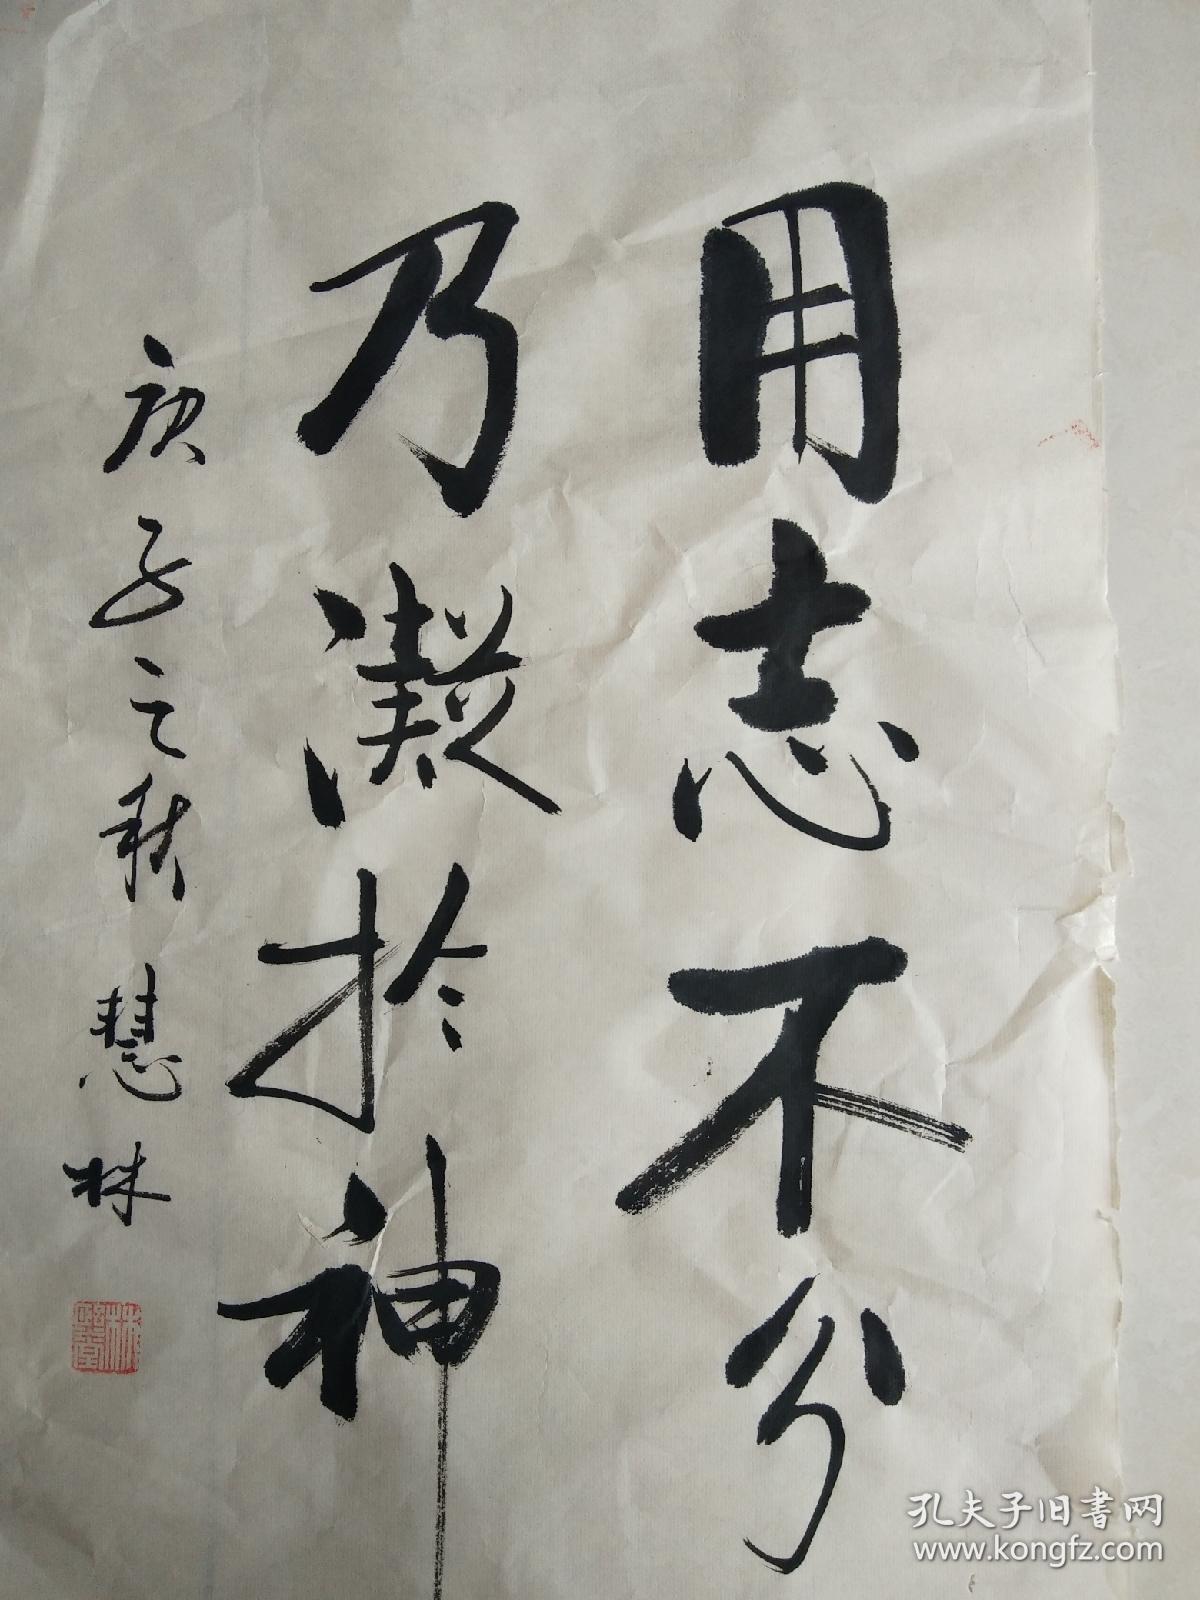 用志不分
乃凝於神
庚子之秋 慧林
孔夫子旧书网
www.kongfz.com